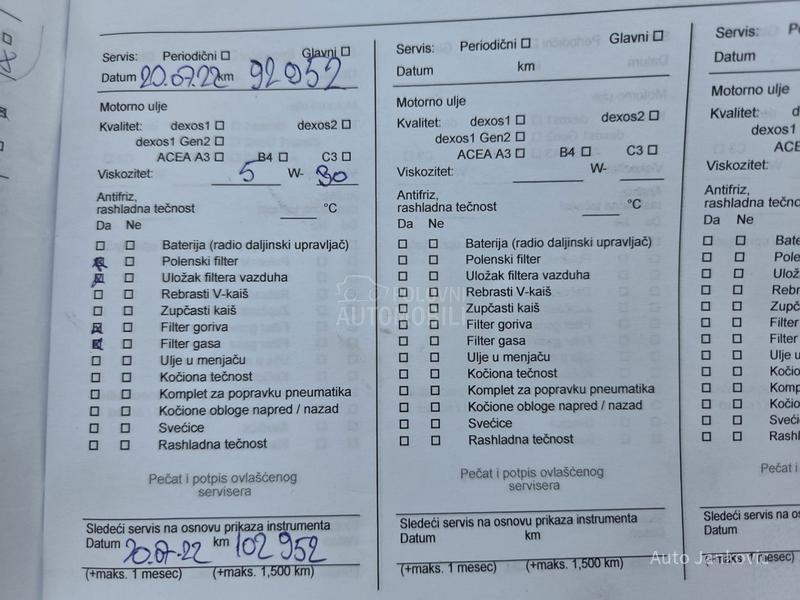 Servis: Periodični Glavni
Datum 20.07.22 km 92952
Motorno ulje
Kvalitet: dexos1 dexos2
dexos1 Gen2
ACEA A3 B4 C3
Viskozitet: 5 W- 30
Antifriz,
rashladna tečnost °C
Da Ne
Baterija (radio daljinski upravljač)
Polenski filter
Uložak filtera vazduha
Rebrasti V-kaiš
Zupčasti kaiš
Filter goriva
Filter gasa
Ulje u menjaču
Kočiona tečnost
Komplet za popravku pneumatika
Kočione obloge napred / nazad
Svećice
Rashladna tečnost
Pečat i potpis ovlašćenog
servisera
Sledeći servis na osnovu prikaza instrumenta
Datum 20.07.22 km 102952
(+maks. 1 mesec) (+maks. 1,500 km)
Servis: Periodični Glavni
Datum km
Motorno ulje
Kvalitet: dexos1 dexos2
dexos1 Gen2
ACEA A3 B4 C3
Viskozitet: W-
Antifriz,
rashladna tečnost °C
Da Ne
Baterija (radio daljinski upravljač)
Polenski filter
Uložak filtera vazduha
Rebrasti V-kaiš
Zupčasti kaiš
Filter goriva
Filter gasa
Ulje u menjaču
Kočiona tečnost
Komplet za popravku pneumatika
Kočione obloge napred / nazad
Svećice
Rashladna tečnost
Pečat i potpis ovlašćenog
servisera
Sledeći servis na osnovu prikaza instrumenta
Datum km
(+maks. 1 mesec) (+maks. 1,500 km)
Servis:
Datum
Motorno ulje
Kvalitet:
dexos1
ACEA
Viskozitet:
Antifriz,
rashladna
Da Ne
Filter
Filter
Ulje
Pečat i
Sledeći servis na osnovu
Datum
(+maks. 1 mesec)
POLOVNI
AUTOMOBILI
Auto Jankovic